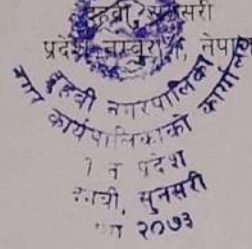 दुहवी, सुनसरी
प्रदेश नम्बर १, नेपाल
दुहवी नगरपालिका
नगर कार्यपालिकाको कार्यालय
प्रदेश
सुनसरी
२०७३